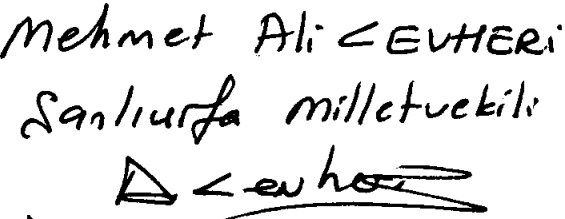 Mehmet Ali CEVHERİ
Şanlıurfa milletvekili